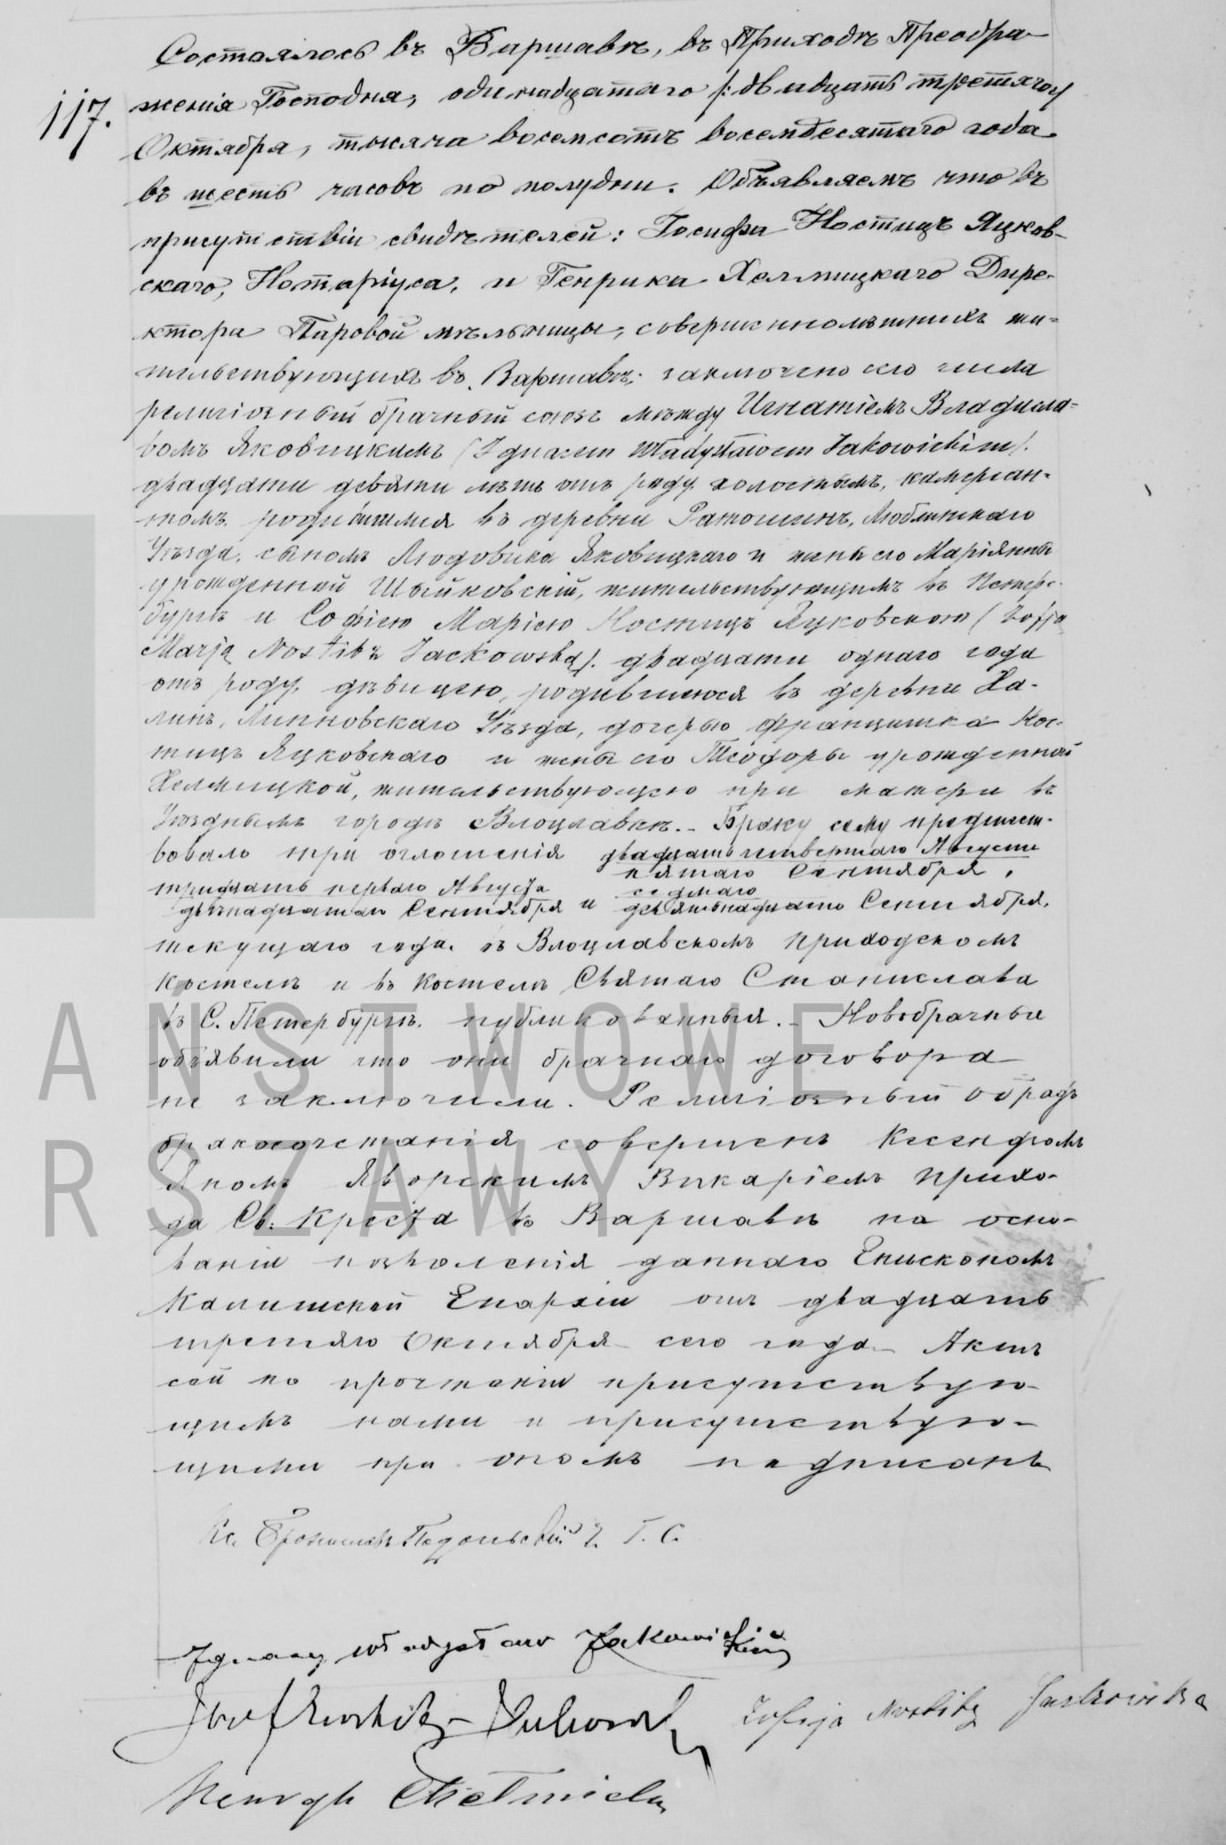 Состоялось въ Варшавѣ, въ Приходѣ Преобра-
117. женія Господня, одинадцатаго /: двадцать третяго:/
Октября, тысяча восемсотъ восемдесятаго года
въ шесть часовъ по полудни. Объявляемъ что въ
присутствіи свидѣтелей: Іосифа Ностицъ Яцков-
скаго, Нотаріуса, и Генрика Хелмицкаго Дире-
ктора Паровой мѣльницы, совершеннолѣтнихъ жи-
тельствующихъ въ Варшавѣ, заключено сего числа
религіозный брачный союзъ между Игнатіемъ Владисла-
вомъ Яковицкимъ /Ignacym Władysławem Jakowickim/.
двадцати девяти лѣтъ отъ роду холостымъ,
родившимся въ деревни Люблинскаго
Уѣзда, сыномъ Людовика Яковицкаго и жены его Маріянны
урожденной жительствующимъ въ Петерс-
бургѣ и Софіею Маріею Ностицъ Яцковскою (Zofją
Marją Nostitz Jackowską). двадцати однаго года
отъ роду, дѣвицею, родившеюся въ деревни Ха-
линѣ, Липновскаго Уѣзда, дочерью Францишка Нос-
тицъ Яцковскаго и жены его Теодоры урожденной
Хелмицкой, жительствующею при матери въ
Уѣздномъ городѣ Влоцлавкѣ. Браку сему предшест-
вовало три оглошенія двадцать четвертаго Августа
пятаго Сентября,
тридцать перваго Августа седмаго
двѣнадцатаго Сентября и девятьнадцатаго Сентября,
текущаго года въ Влоцлавскомъ приходскомъ
костелѣ и въ костелѣ Святаго Станислава
въ С. Петербургѣ публикованныя. Новобрачные
объявили что они брачнаго договора
не заключили. Религіозный обрядъ
бракосочетанія совершенъ Ксендзомъ
Яномъ Яворскимъ Викаріемъ прихо-
да Св. Креста въ Варшавѣ на осно-
ваніи позволенія даннаго Епископомъ
Калишской Епархіи отъ двадцать
третяго Октября сего года. Актъ
сей по прочтеніи присутствую-
щимъ нами и присутствую-
щими при ономъ подписанъ
Кс. У. Г. С.
Ignacy Władysław Jakowicki
Józef Nostitz-Jackowski Zofija Nostitz Jackowska
Henryk Chełmicki